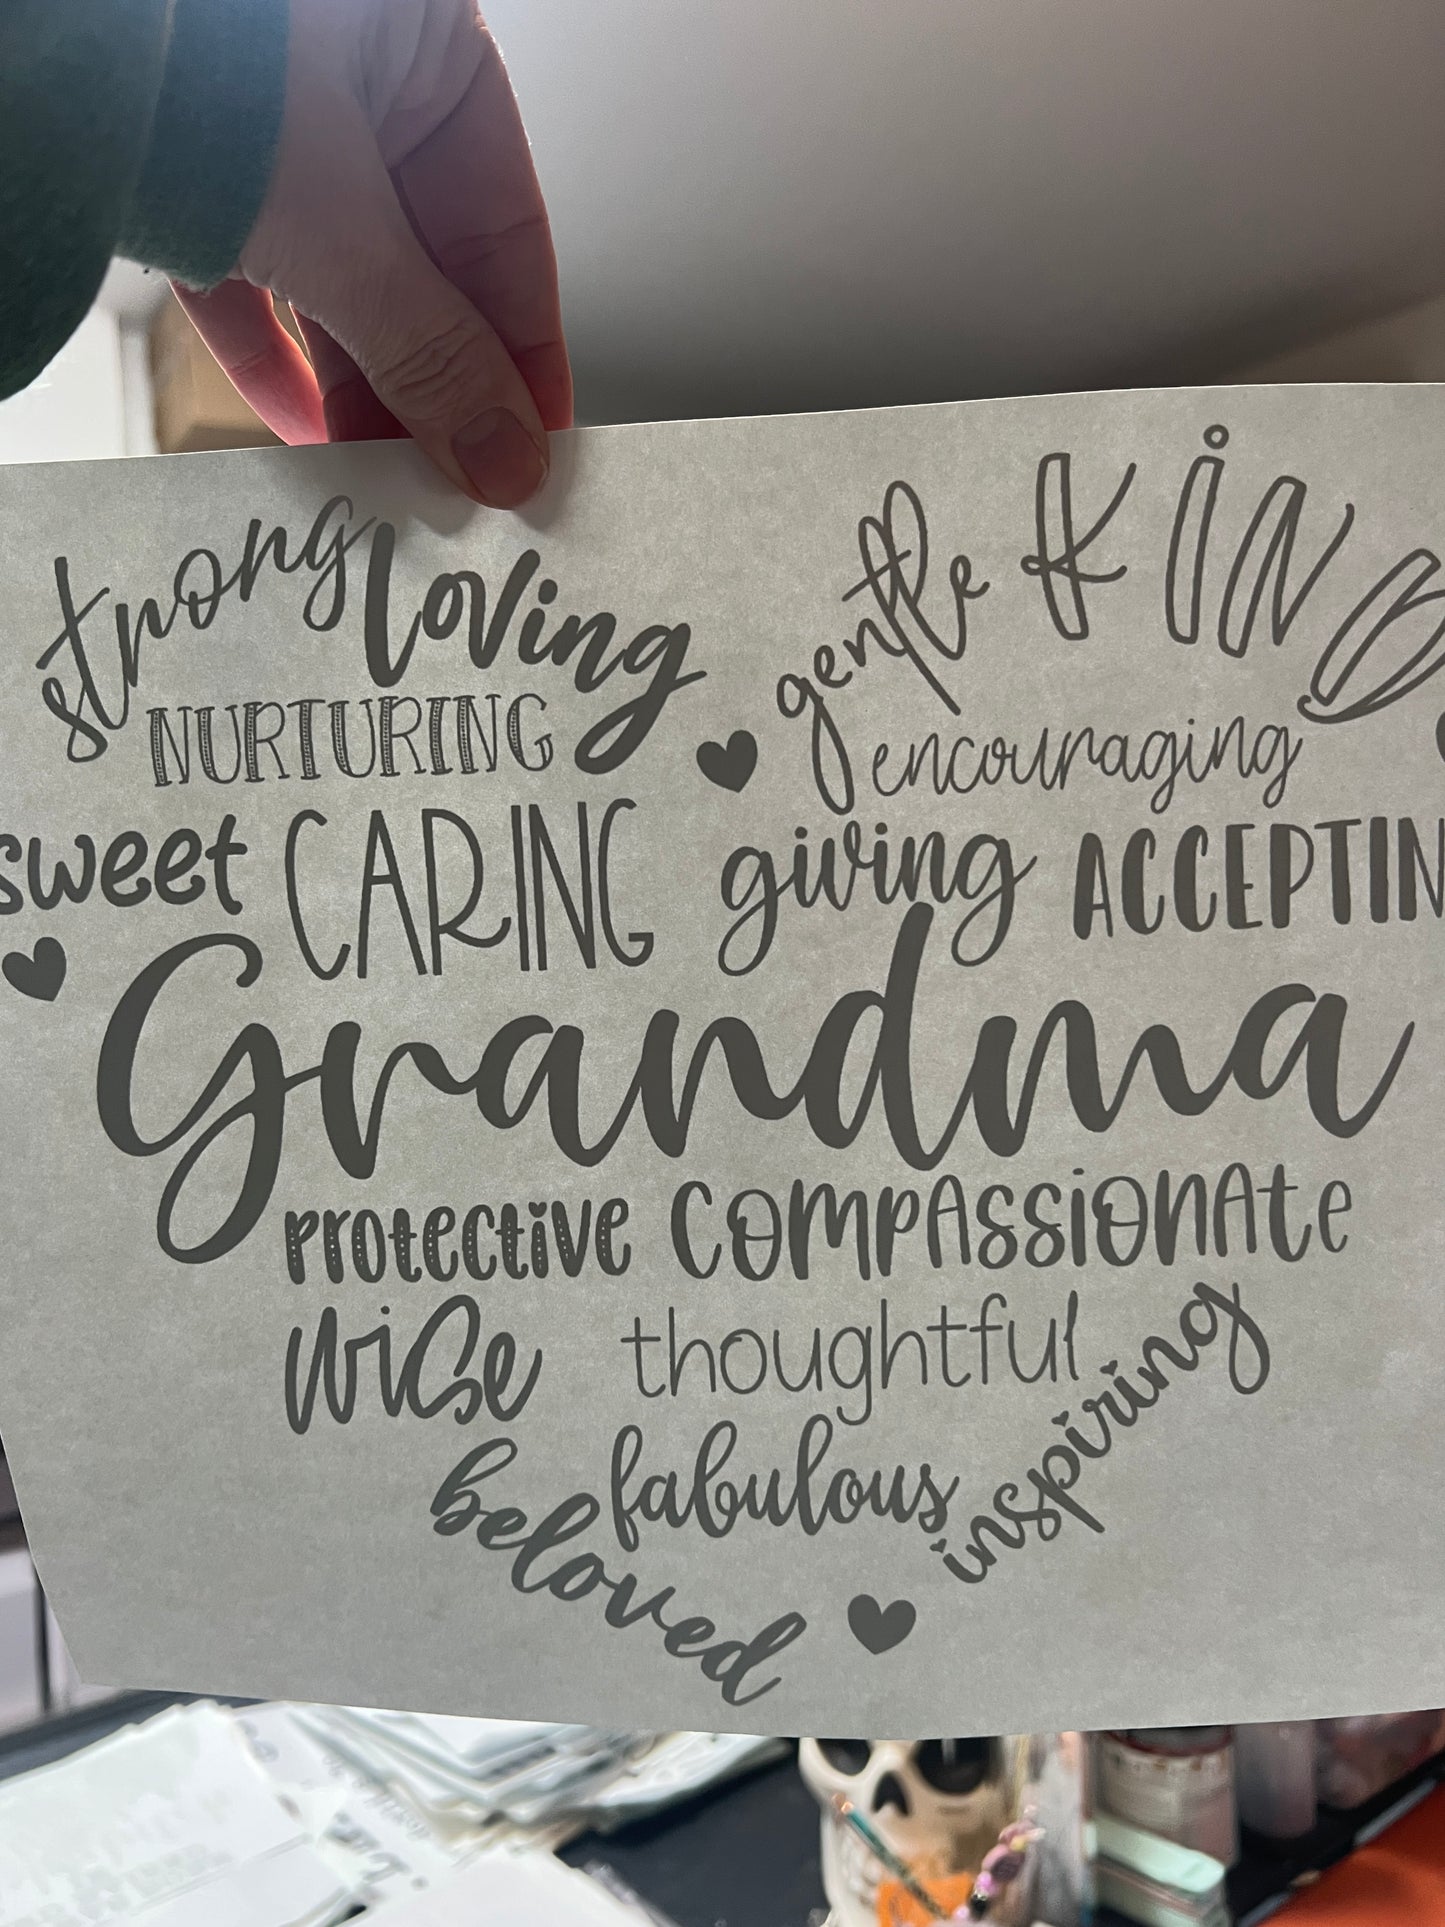 strong loving gentle KiND
NURTURING encouraging
sweet CARING giving ACCEPTIN
Grandma
PROTECTiVE COMPASSiONATe
wise thoughtful inspiring
beloved fabulous